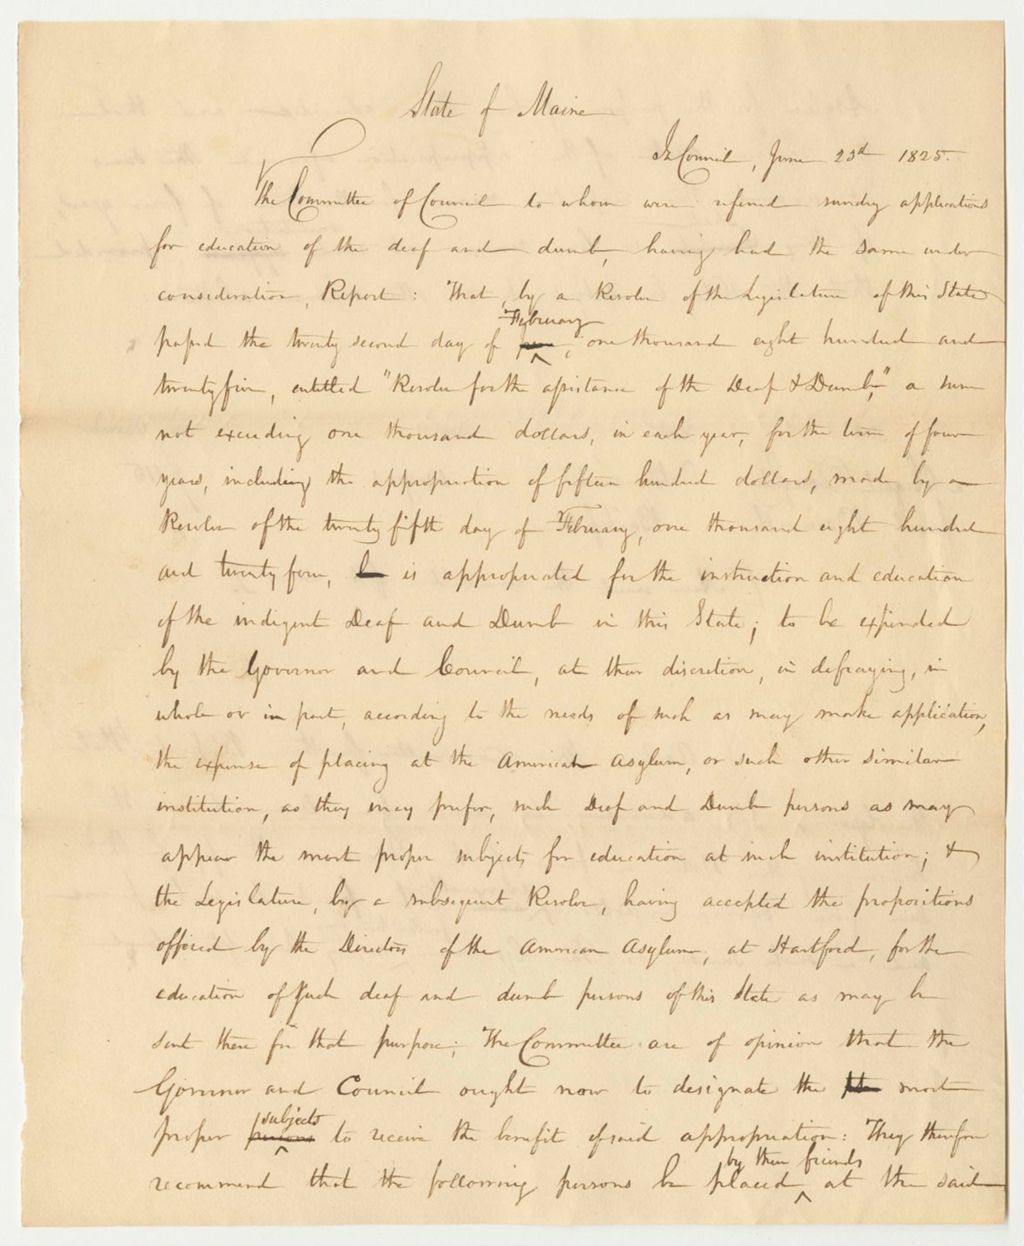 State of Maine
In Council, June 23d 1825.
The Committee of Council to whom were referred sundry applications
for education of the deaf and dumb, having had the same under
consideration, Report: That, by a Resolve of the Legislature of this State
February
passed the twenty second day of , one thousand eight hundred and
twenty five, entitled "Resolve for the assistance of the Deaf & Dumb," a sum
not exceeding one thousand dollars, in each year, for the term of four
years, including the appropriation of fifteen hundred dollars, made by a
Resolve of the twenty fifth day of February, one thousand eight hundred
and twenty four, is appropriated for the instruction and education
of the indigent Deaf and Dumb in this State; to be expended
by the Governor and Council, at their discretion, in defraying, in
whole or in part, according to the needs of such as may make application,
the expense of placing at the American Asylum, or such other similar
institution, as they may prefer, such Deaf and Dumb persons as may
appear the most proper subjects for education at such institution; &
the Legislature, by a subsequent Resolve, having accepted the propositions
offered by the Directors of the American Asylum, at Hartford, for the
education of such deaf and dumb persons of this State as may be
sent there for that purpose; The Committee are of opinion that the
Governor and Council ought now to designate the most
subjects
proper persons to receive the benefit of said appropriation: They therefore
by their friends
recommend that the following persons be placed at the said